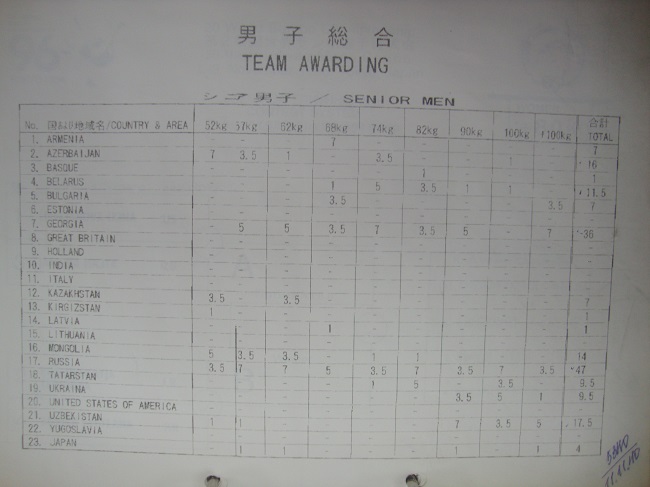 男子総合
TEAM AWARDING
シニア男子 / SENIOR MEN
No. 国および地域名/COUNTRY & AREA 52kg 57kg 62kg 68kg 74kg 82kg 90kg 100kg +100kg 合計 TOTAL
1. ARMENIA - - - 7 - - - - - 7
2. AZERBAIJAN 7 3.5 1 - 3.5 - - - - 16
3. BASQUE - - - - - 1 - - - 1
4. BELARUS - - - 1 5 3.5 1 1 - 11.5
5. BULGARIA - - - 3.5 - - - - 3.5 7
6. ESTONIA - - - - - - - - - -
7. GEORGIA - 5 5 3.5 7 3.5 5 7 36
8. GREAT BRITAIN - - - - - - - - - -
9. HOLLAND - - - - - - - - - -
10. INDIA - - - - - - - - - -
11. ITALY - - - - - - - - - -
12. KAZAKHSTAN 3.5 - 3.5 - - - - - - 7
13. KIRGIZSTAN 1 - - - - - - - - 1
14. LATVIA - - - - - - - - - -
15. LITHUANIA - - - 1 - - - - - 1
16. MONGOLIA 5 3.5 3.5 - 1 1 - - - 14
17. RUSSIA 3.5 7 7 5 3.5 7 3.5 7 3.5 47
18. TATARSTAN - - - - - - - - - -
19. UKRAINA - - - - 1 5 - 3.5 - 9.5
20. UNITED STATES OF AMERICA - - - - - - 3.5 5 1 9.5
21. UZBEKISTAN 1 1 - - - - 7 3.5 5 17.5
22. YUGOSLAVIA - - - - - - - - - -
23. JAPAN - 1 1 - - - 1 1 - 4